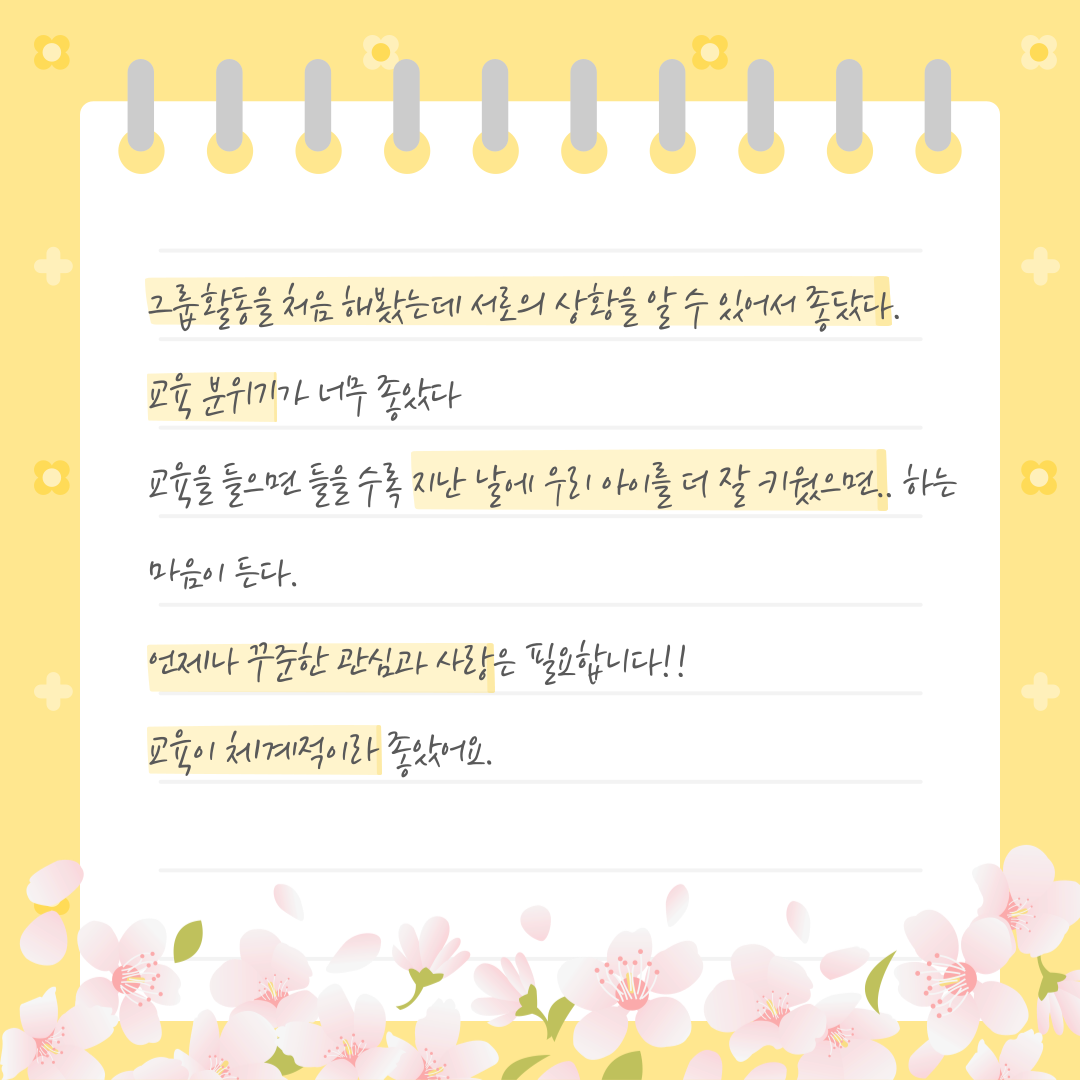 그룹활동을 처음 해봤는데 서로의 상황을 알 수 있어서 좋닸다.
교육 분위기가 너무 좋았다
교육을 들으면 들을 수록 지난 날에 우리 아이를 더 잘 키웠으면.. 하는
마음이 든다.
언제나 꾸준한 관심과 사랑은 필요합니다!!
교육이 체계적이라 좋았어요.